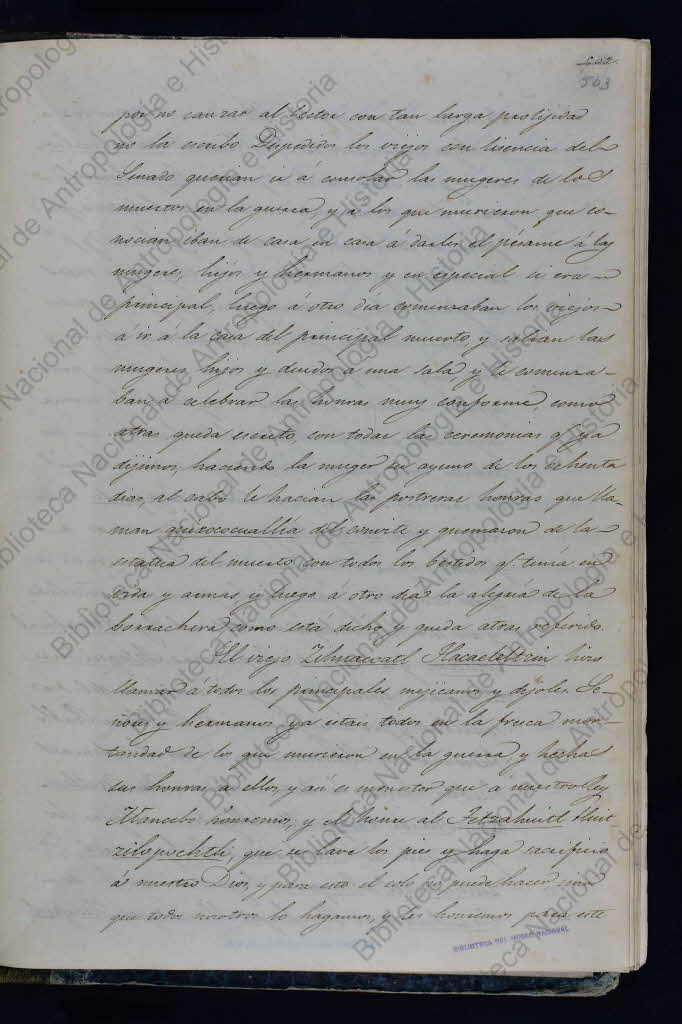 502.
503
por no canzar al lector con tan larga prolijidad
no la escribo Despedidos los viejos con licencia del
Senado querian ir á consolar las mugeres de los
muertos en la guerra, y a los que murieron, que co-
nocian iban de casa en casa á darles el pésame á las
mugeres, hijos y hermanos y en especial si era
principal, luego á otro dia comenzaban los viejos
á ir á la casa del principal muerto, y salian las
mugeres, hijos y deudos á una sala, y le comenza-
ban á celebrar las honras muy conforme, como
atras queda escrito, con todas las ceremonias q.e ya
dijimos, haciendo la muger su ayuno de los ochenta
dias, al cabo le hacian las postreras honras que lla-
man quixococuallia del convite y quemazon de la
estatua del muerto con todos los bestidos q.e tenía en
vida y armas y luego á otro dia la alegria de la
borrachera, como está dicho, y queda atras referido.
El viejo Zihuacoatl Tlacaeleltzin hizo
llamar á todos los principales mejicanos y dijoles. Se-
ñores y hermanos, ya estais todos en la fresca mor-
tandad de los que murieron en la guerra, y hechas
sus honras á ellos, y asi es menester que á nuestro Rey
Mancebo honremos, y el honre al Tetzahuitl Huit
zilopochtli, que se lave los pies y haga sacrificio
á nuestro Dios, y para esto el solo no puede hacer, sino
que todos nosotros lo hagamos, y les honremos para este
BIBLIOTECA DEL MUSEO NACIONAL
Biblioteca Nacional de Antropología e Historia